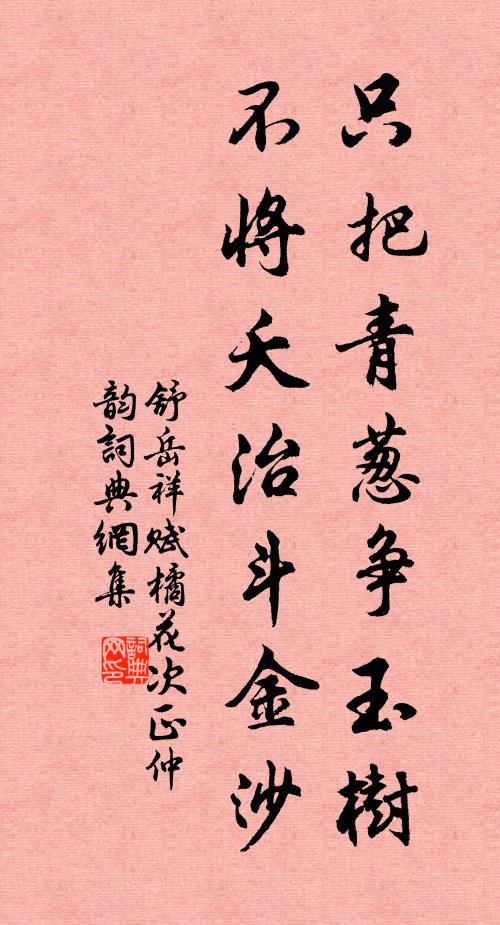 只把青葱争玉樹
不將夭治斗金沙
舒岳祥赋橘花次正仲
韵詞典網集
詞典网印